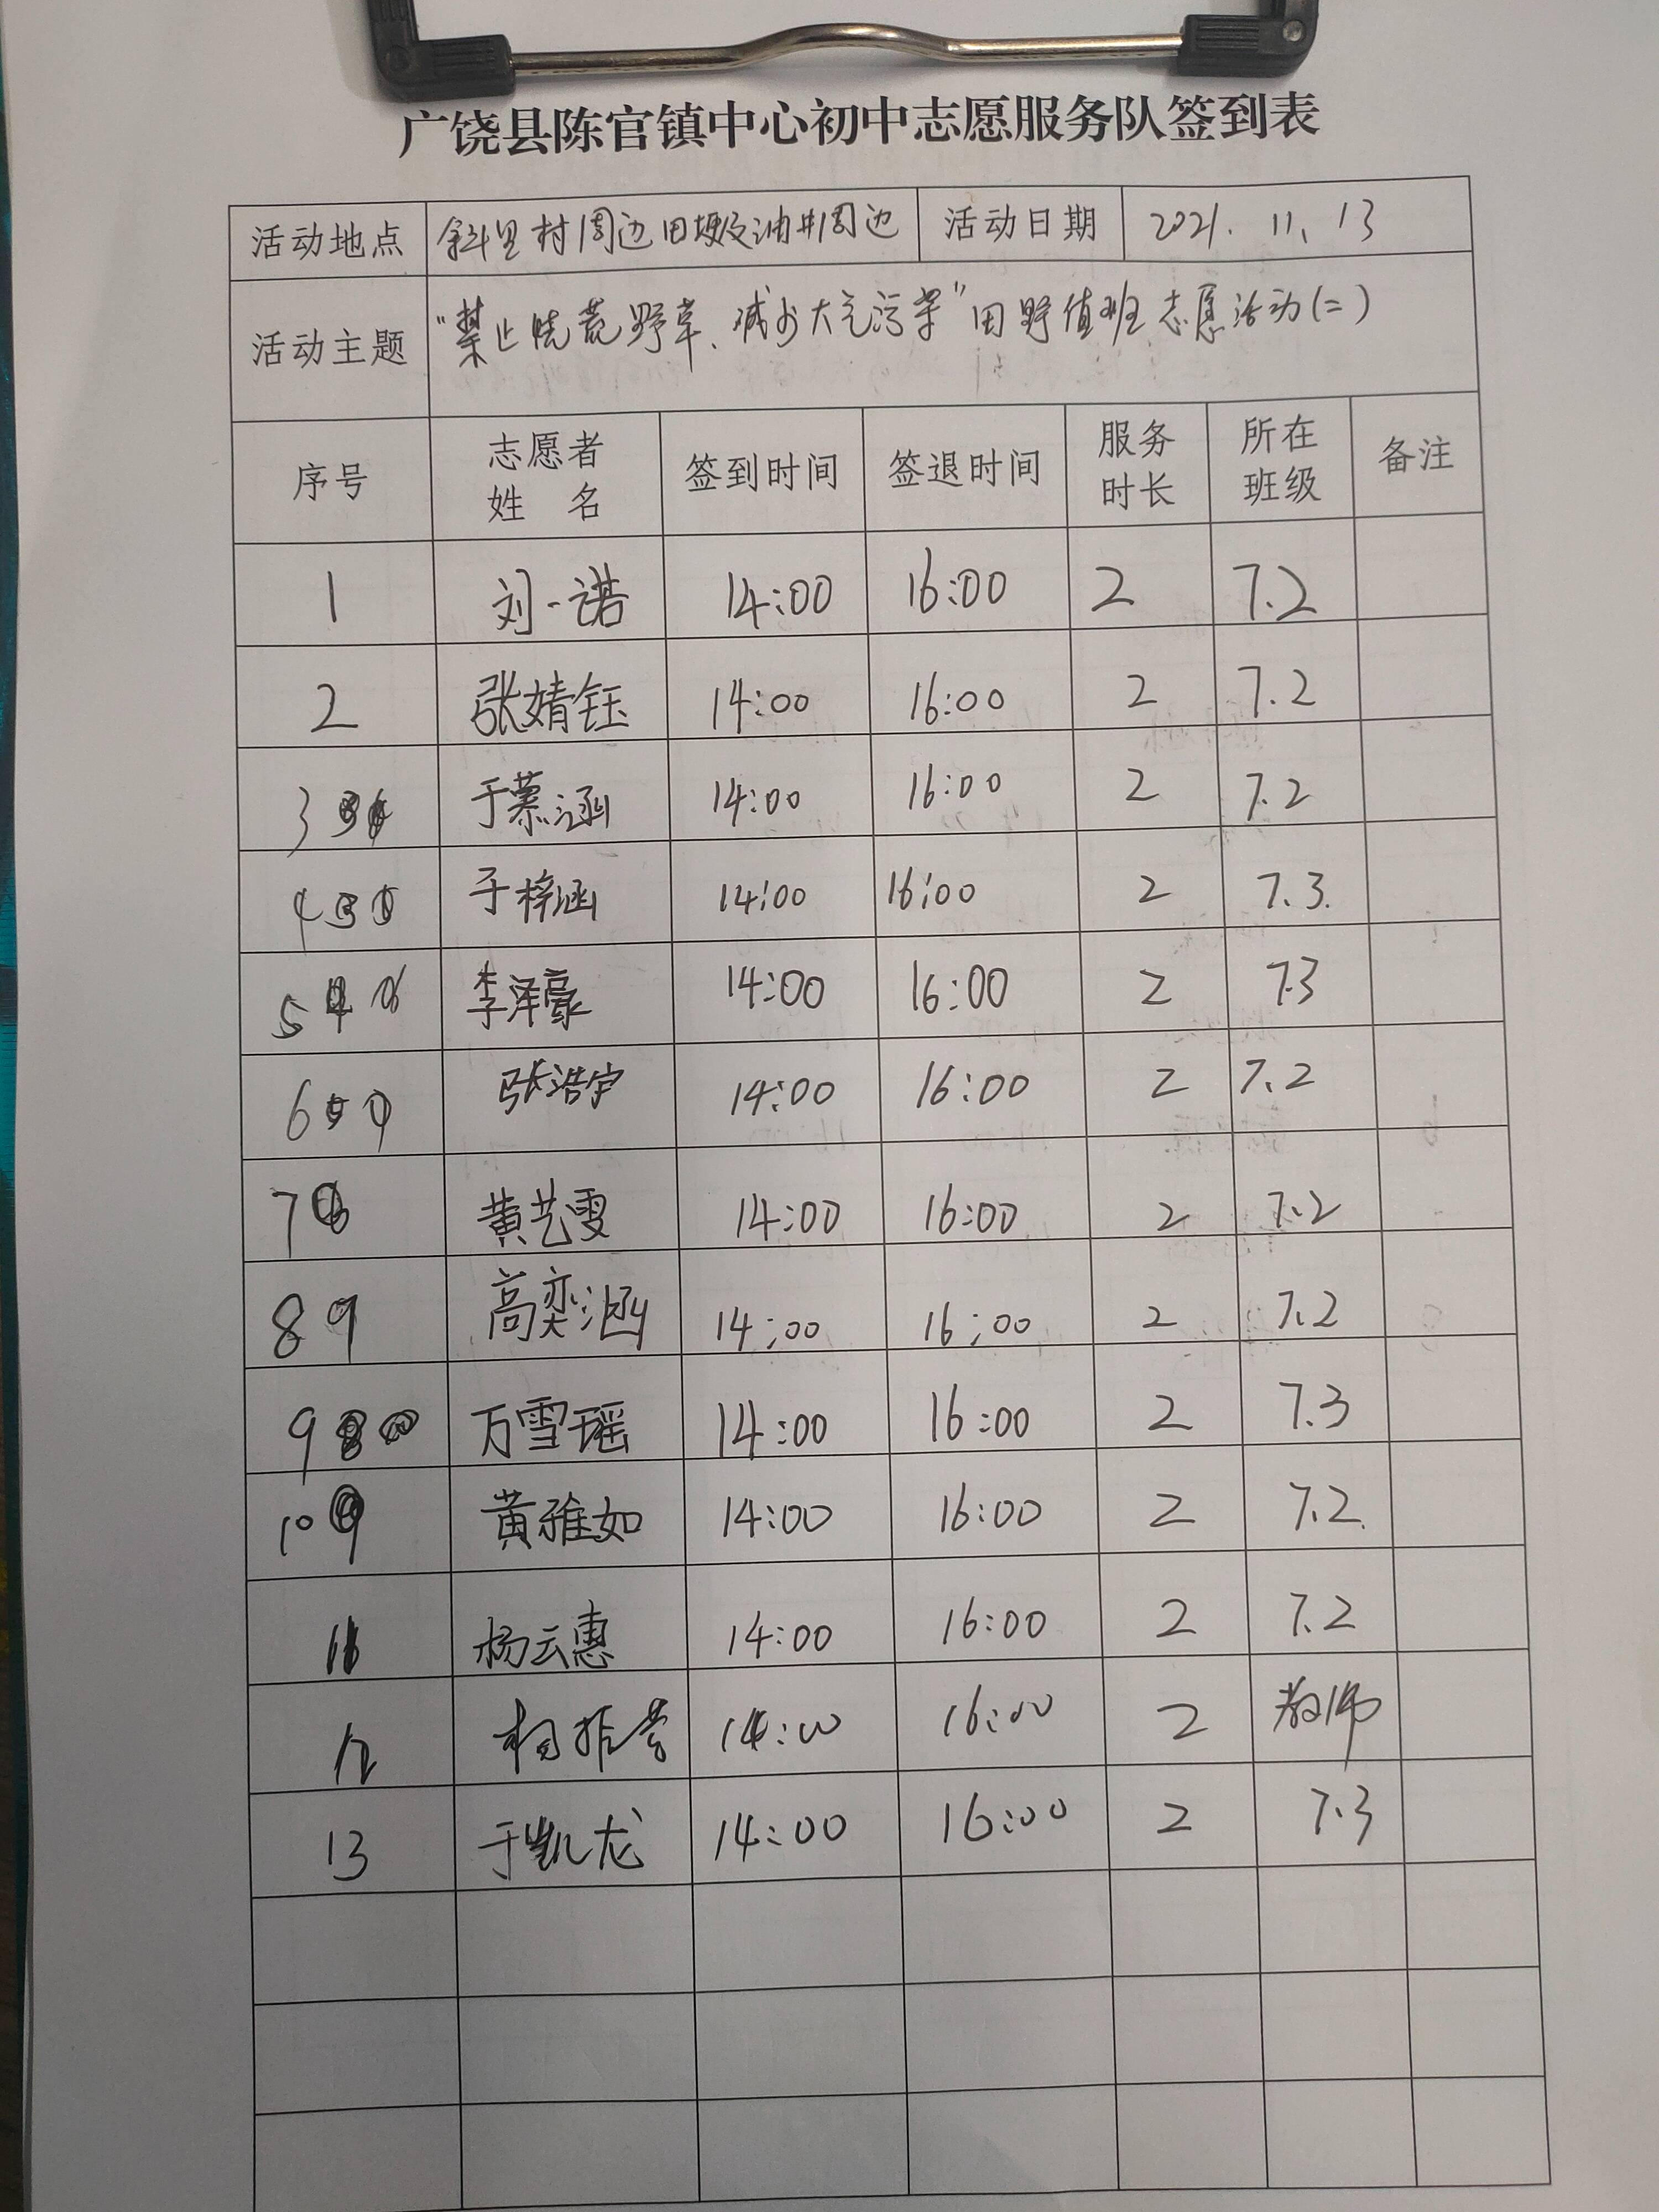 广饶县陈官镇中心初中志愿服务队签到表
活动地点 斜里村周边田埂及油井周边 活动日期 2021.11.13
活动主题 “禁止烧荒野草、减少大气污染”田野值班志愿活动(二)
序号 志愿者姓名 签到时间 签退时间 服务时长 所在班级 备注
1 刘一诺 14:00 16:00 2 7.2
2 张婧钰 14:00 16:00 2 7.2
3 于慕涵 14:00 16:00 2 7.2
4 于梓涵 14:00 16:00 2 7.3.
5 李泽豪 14:00 16:00 2 7.3
6 张浩宇 14:00 16:00 2 7.2
7 黄艺雯 14:00 16:00 2 7.2
8 高奕涵 14:00 16:00 2 7.2
9 万雪瑶 14:00 16:00 2 7.3
10 黄雅如 14:00 16:00 2 7.2.
11 杨云惠 14:00 16:00 2 7.2
12 14:00 16:00 2 教师
13 于凯龙 14:00 16:00 2 7.3